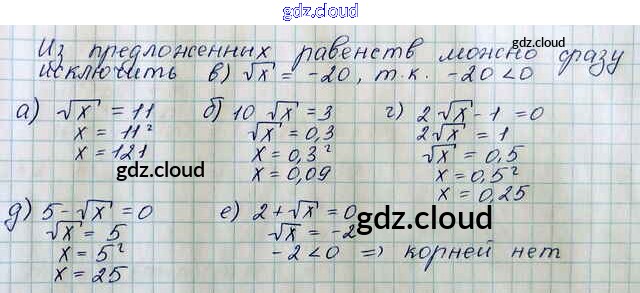 gdz.cloud
Из предложенных равенств можно сразу
gdz.cloud
исключить в) √x = -20, т.к. -20<0
а) √x = 11
x = 11²
x = 121
б) 10 √x = 3
√x = 0,3
x = 0,3²
x = 0,09
г) 2√x - 1 = 0
2√x = 1
√x = 0,5
x = 0,5²
x = 0,25
gdz.cloud
д) 5 - √x = 0
√x = 5
x = 5²
x = 25
е) 2 + √x = 0
√x = -2
-2<0 ⇒ корней нет
gdz.cloud